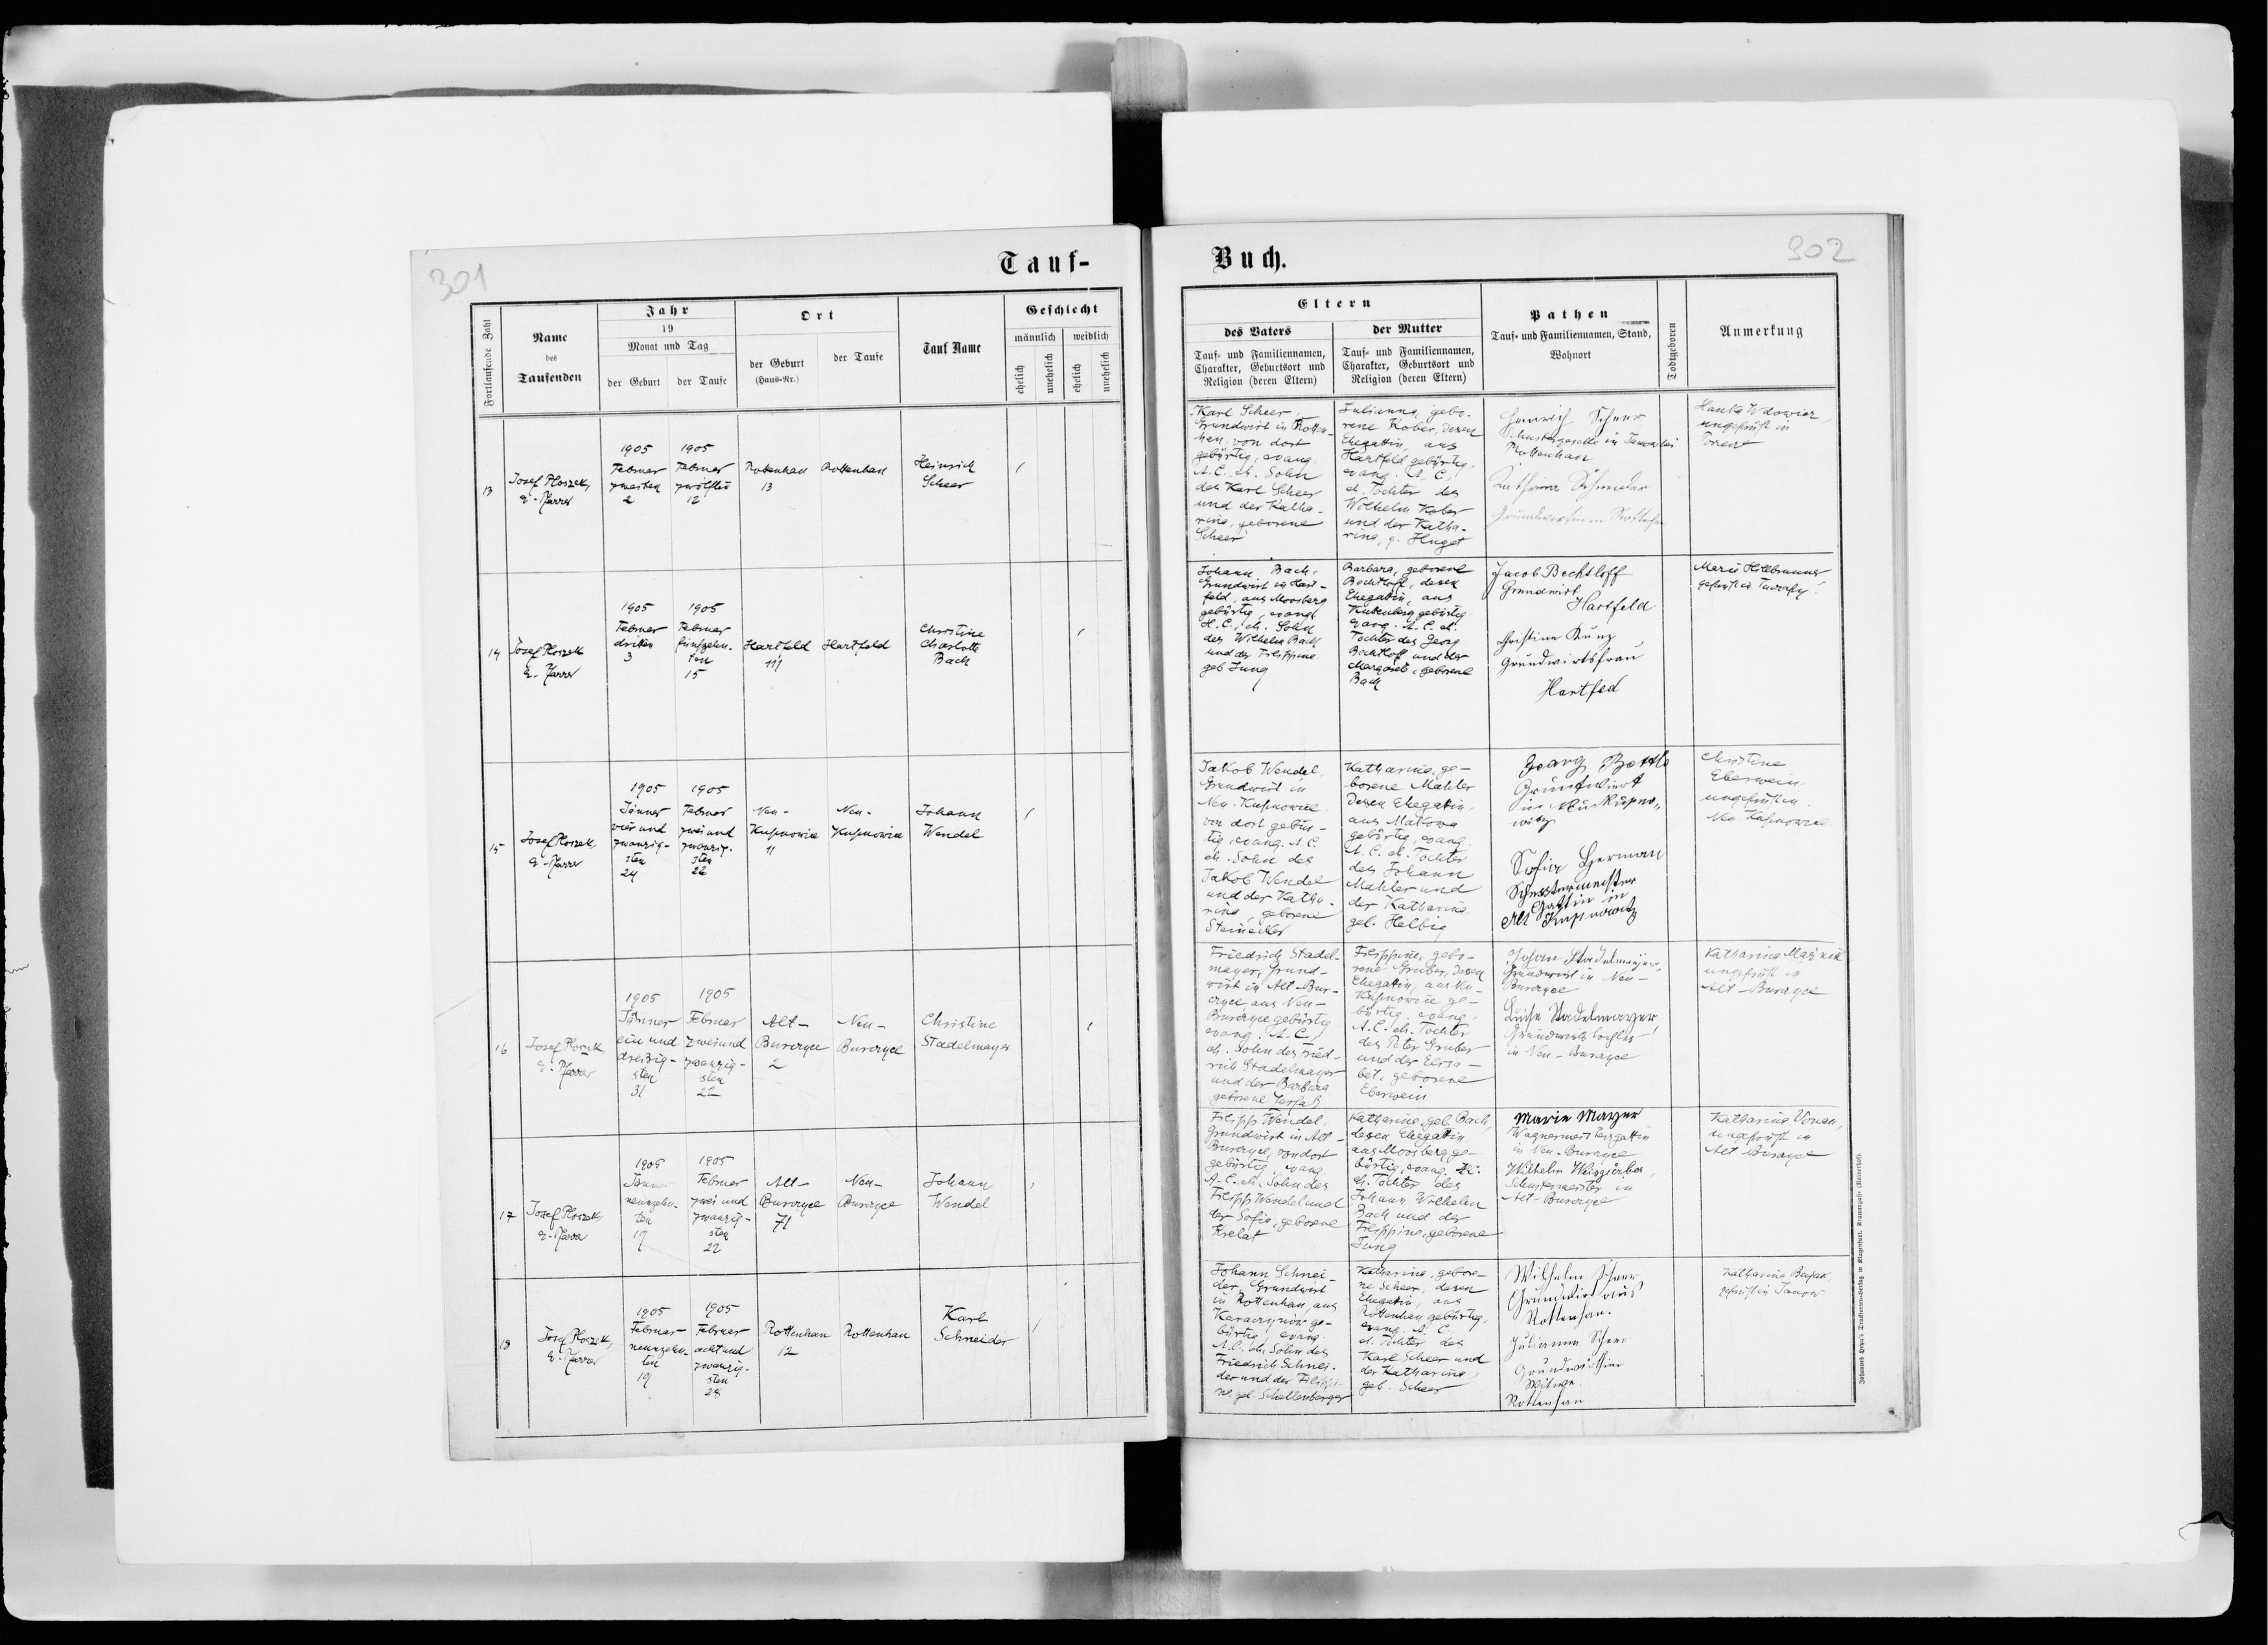 301
Tauf-
Fortlaufende Zahl
Name
des
Taufenden
Jahr
19
Monat und Tag
der Geburt
der Taufe
Ort
der Geburt
(Haus-Nr.)
der Taufe
Tauf Name
Geschlecht
männlich
weiblich
ehelich
unehelich
ehelich
unehelich
13
Josef Ploszek,
e. Pfarrer
1905
Februar
zweiten
2
1905
Februar
zwölften
12
Rottenhan
13
Rottenhan
Heinrich
Scheer
14
Josef Ploszek
e. Pfarrer
1905
Februar
dritten
3
1905
Februar
fünfzehn-
ten
15
Hartfeld
111
Hartfeld
Christine
Charlotte
Bach
15
Josef Ploszek
e. Pfarrer
1905
Jänner
vier und
zwanzig-
sten
24
1905
Februar
zwei und
zwanzig-
sten
22
Neu-
Kupnowice
11
Neu-
Kupnowice
Johann
Wendel
16
Josef Ploszek
e. Pfarrer
1905
Jänner
ein und
dreißig-
sten
31
1905
Februar
zwei und
zwanzig-
sten
22
Alt-
Burczyce
2
Neu-
Burczyce
Christine
Stadelmayer
17
Josef Ploszek,
e. Pfarrer
1905
Jänner
neunzehn-
ten
19
1905
Februar
zwei und
zwanzig-
sten
22
Alt-
Burczyce
71
Neu-
Burczyce
Johann
Wendel
18
Josef Ploszek,
e. Pfarrer
1905
Februar
neunzehn-
ten
19
1905
Februar
acht und
zwanzig-
sten
28
Rottenhan
12
Rottenhan
Karl
Schneider
Buch.
302
Eltern
des Vaters
Tauf- und Familiennamen,
Charakter, Geburtsort und
Religion (deren Eltern)
der Mutter
Tauf- und Familiennamen,
Charakter, Geburtsort und
Religion (deren Eltern)
Pathen
Tauf- und Familiennamen, Stand,
Wohnort
Todtgeboren
Anmerkung
Karl Scheer,
Grundwirt in Rotten-
han, von dort
gebürtig, evang.
A.C. eh. Sohn
des Karl Scheer
und der Katha-
rina, geborene
Scheer
Julianna, gebo-
rene Kober, dessen
Ehegattin, aus
Hartfeld gebürtig,
evang. A. C.,
eh. Tochter des
Wilhelm Kober
und der Katha-
rina, g. Huget
Heinrich Scheer
Schustergeselle in Janow bei
Rottenhan
Katharina Schneider
Grundwirtin in
Hanka Wdowiar
ungeprüft in
Johann Bach,
Grundwirt in Hart-
feld, aus Moosberg
gebürtig, evang.
H.C., eh. Sohn
des Wilhelm Bach
und der Filippine
geb Jung
Barbara, geborene
Bechtloff, dessen
Ehegattin, aus
gebürtig
evang. A. C. eh.
Tochter des Georg
Bechtloff und der
Margaret, geborene
Bach
Jacob Bechtloff
Grundwirt
Hartfeld
Christine Kunz
Grundwirtsfrau
Hartfed
Marie
geprüft in
Jakob Wendel,
Grundwirt in
Neu-Kupnowice
von dort gebür-
tig, evang. A.C.
eh. Sohn des
Jakob Wendel
und der Katha-
rina, geborene
Steinecker
Katharina, ge-
borene Mahler
dessen Ehegattin,
aus Makowa
gebürtig, evang.
A. C. eh. Tochter
des Johann
Mahler und
der Katharina
geb. Helbig
Georg
Grundwirt
in Neu Kupno-
witz
Sofia Herman
Schustermeister
Gattin in
Alt Kupnowitz
Christine
Eberwein
ungeprüft in
Neu Kupnowice
Friedrich Stadel-
mayer, Grund-
wirt in Alt-Bur-
czyce aus Neu-
Burczyce gebürtig
evang. A.C.,
eh. Sohn des Fried-
rich Stadelmayer
und der Barbara
geborene
Filippine, gebo-
rene Gruber, dessen
Ehegattin, aus Neu-
Kupnowice ge-
bürtig, evang.
A.C. eh. Tochter
des Peter Gruber
und der Elisa-
bet, geborene
Eberwein
Johan Stadelmayer,
Grundwirt in Neu-
Burczyce
Luise Stadelmayer,
Grundwirts tochter
in Neu-Burczyce
Katharina
ungeprüft in
Alt-Burczyce
Filipp Wendel,
Grundwirt in Alt-
Burczyce, von dort
gebürtig, evang.
A.C. eh. Sohn des
Filipp Wendel und
der Sofia, geborene
Krelat
Katharina, geb. Bach,
dessen Ehegattin
aus Moosberg ge-
bürtig, evang. H.C.
eh. Tochter des
Johann Wilhelm
Bach und der
Filippine, geborene
Jung
Marie Mayer
Wagnermeistersgattin
in Neu-Burczyce
Wilhelm Weizgärber,
Schustermeister in
Alt-Burczyce
Katharina Vonau,
ungeprüft in
Alt Burczyce
Johann Schnei-
der, Grundwirt
in Rottenhan, aus
Karaczynow ge-
bürtig, evang.
A.C. eh. Sohn des
Friedrich Schnei-
der und der Filippi-
ne geb. Schellenberger
Katharina, gebore-
ne Scheer, dessen
Ehegattin, aus
Rottenhan gebürtig,
evang. A. C.
eh. Tochter des
Karl Scheer und
der Katharina,
geb. Scheer
Wilhelm Scheer
Grundwirt aus
Rottenhan.
Julianna Scheer
Grundwirthin
Witwe
Rottenhan
Katharina Bujak
geprüft in Janow